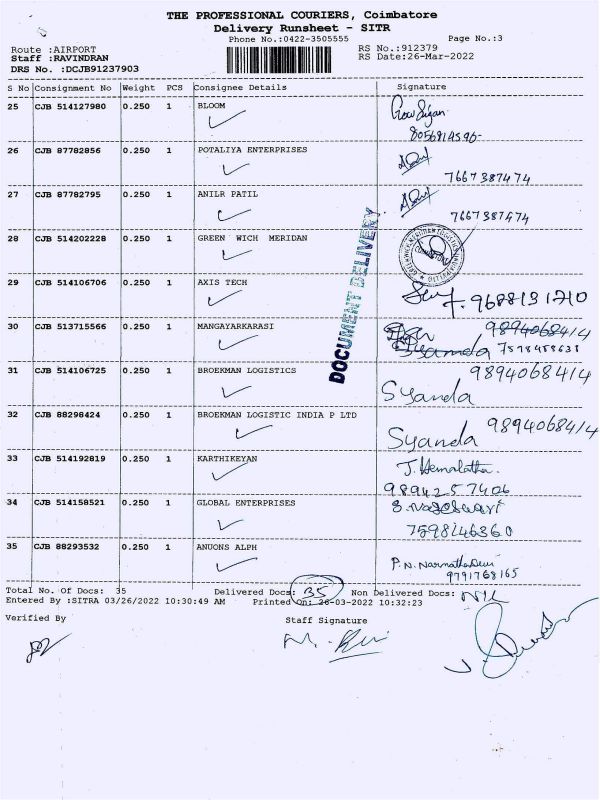 THE PROFESSIONAL COURIERS, Coimbatore
Delivery Runsheet - SITR
Phone No.:0422-3505555 Page No.:3
Route :AIRPORT RS No.:912379
Staff :RAVINDRAN RS Date:26-Mar-2022
DRS No. :DCJB91237903
S No Consignment No Weight PCS Consignee Details Signature
25 CJB 514127980 0.250 1 BLOOM
8056814596-
26 CJB 87782856 0.250 1 POTALIYA ENTERPRISES
7667387474
27 CJB 87782795 0.250 1 ANILR PATIL
7667387474
28 CJB 514202228 0.250 1 GREEN WICH MERIDAN
29 CJB 514106706 0.250 1 AXIS TECH
9688131710
30 CJB 513715566 0.250 1 MANGAYARKARASI 9894068414
Syanda 7598458638
31 CJB 514106725 0.250 1 BROEKMAN LOGISTICS 9894068414
Syanda
32 CJB 88298424 0.250 1 BROEKMAN LOGISTIC INDIA P LTD
Syanda 9894068414
33 CJB 514192819 0.250 1 KARTHIKEYAN J. Hemalatha.
9894257406
34 CJB 514158521 0.250 1 GLOBAL ENTERPRISES S. Nageswari
7598146360
35 CJB 88293532 0.250 1 ANUONS ALPH
P. N. Narmatha Devi
9791768165
DOCUMENT DELIVERY
Total No. Of Docs: 35 Delivered Docs: 35 Non Delivered Docs: NIL
Entered By :SITRA 03/26/2022 10:30:49 AM Printed On: 26-03-2022 10:32:23
Verified By Staff Signature